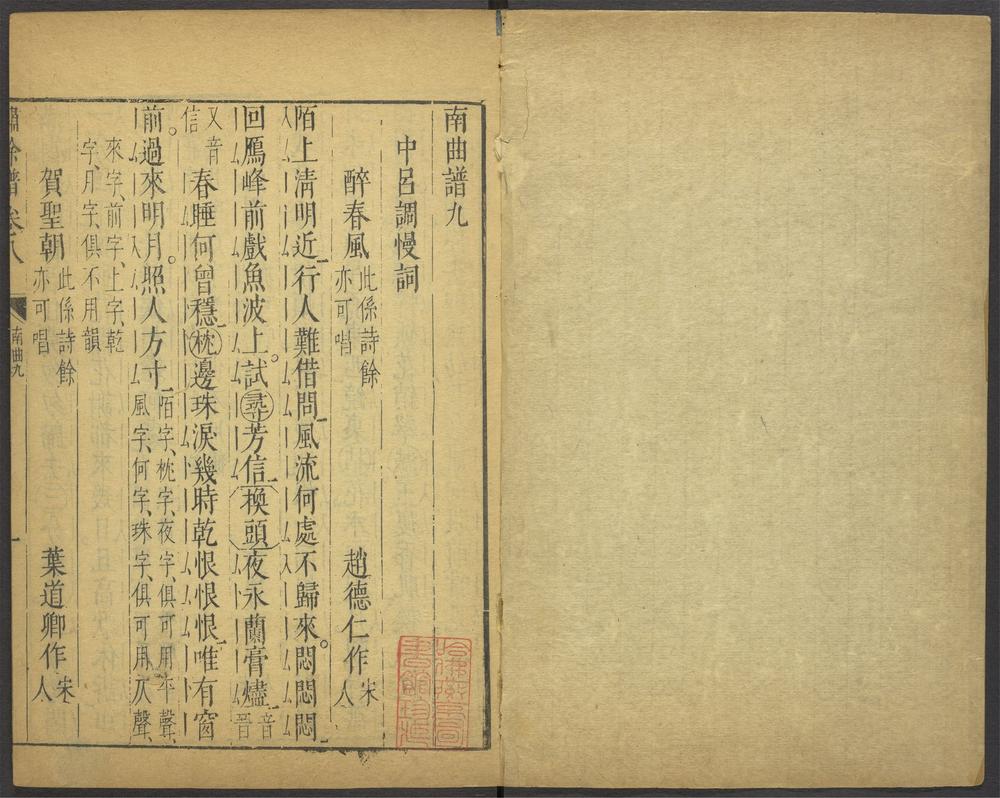 南曲譜九
中呂調慢詞
醉春風 此係詩餘亦可唱 趙德仁作 宋人
陌上淸明近行人難借問風流何處不歸來悶悶悶
回鴈峰前戲魚波上試尋芳信換頭夜永蘭膏燼音晉
又音信春睡何曾穩枕邊珠淚幾時乾恨恨恨唯有窗
前過來明月照人方寸 陌字枕字夜字俱可用平聲風字何字珠字俱可用仄聲
來字前字上字乾字月字俱不用韻
賀聖朝 此係詩餘亦可唱 葉道卿作 宋人
嘯餘譜 卷八 南曲九 一
哈佛大學圖書館珍藏